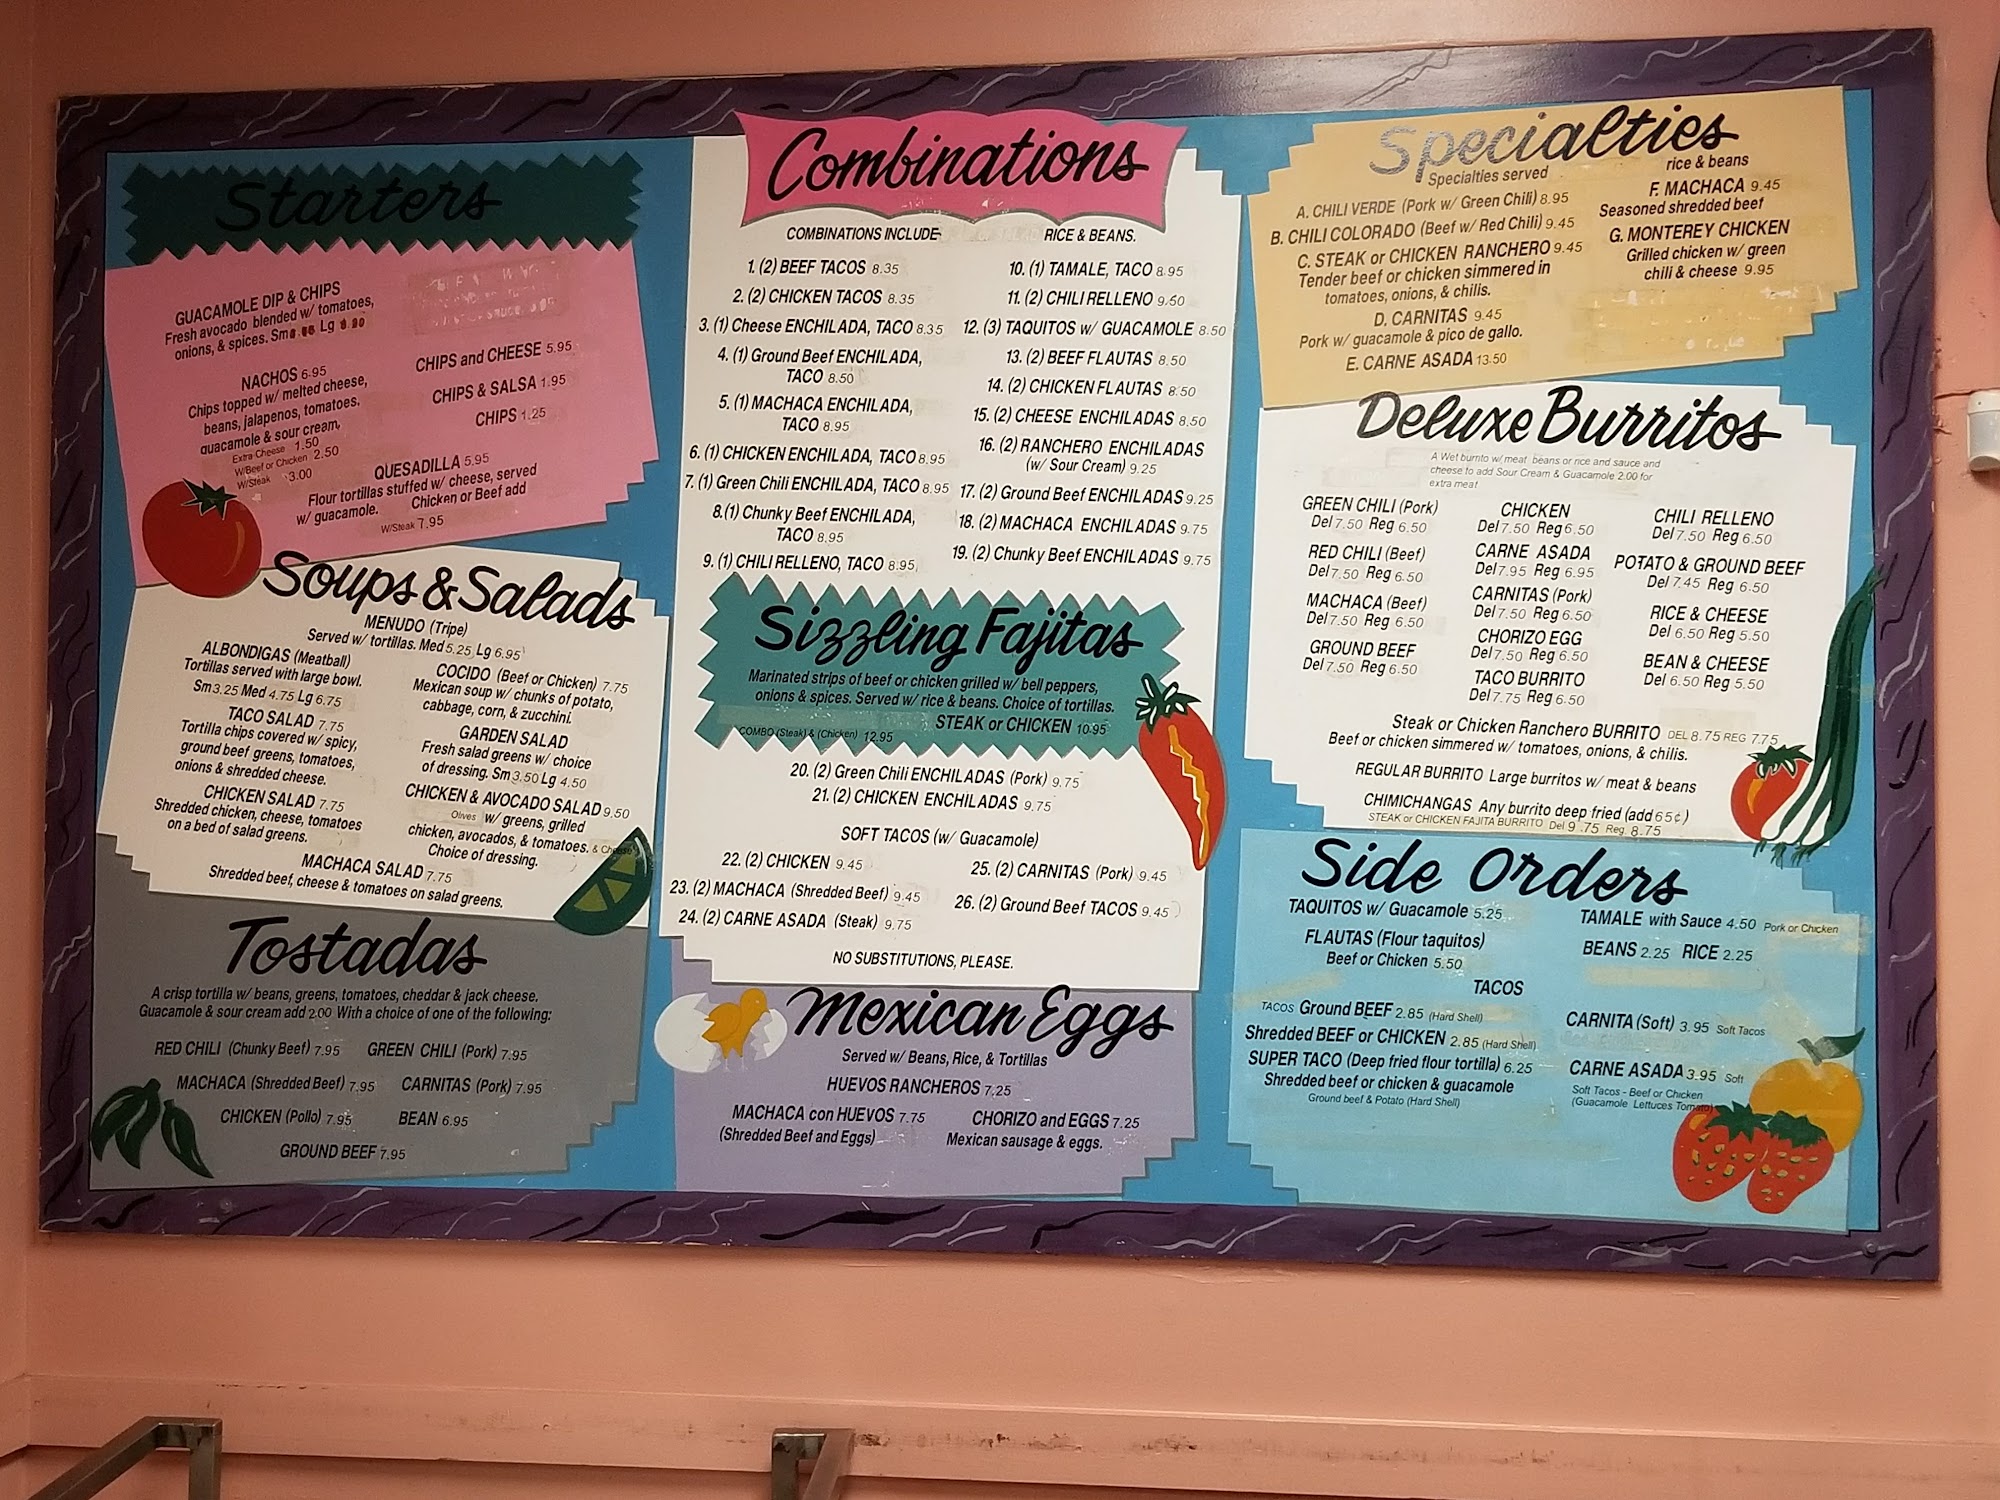 Starters
GUACAMOLE DIP & CHIPS
Fresh avocado blended w/ tomatoes,
onions, & spices. Sm Lg
NACHOS 6.95
Chips topped w/ melted cheese,
beans, jalapenos, tomatoes,
guacamole & sour cream.
Extra Cheese 1.50
W/Beef or Chicken 2.50
W/Steak 3.00
CHIPS and CHEESE 5.95
CHIPS & SALSA 1.95
CHIPS 1.25
QUESADILLA 5.95
Flour tortillas stuffed w/ cheese, served
w/ guacamole. Chicken or Beef add
W/Steak 7.95
Soups & Salads
MENUDO (Tripe)
Served w/ tortillas. Med 5.25 Lg 6.95
ALBONDIGAS (Meatball)
Tortillas served with large bowl.
Sm 3.25 Med 4.75 Lg 6.75
TACO SALAD 7.75
Tortilla chips covered w/ spicy,
ground beef greens, tomatoes,
onions & shredded cheese.
CHICKEN SALAD 7.75
Shredded chicken, cheese, tomatoes
on a bed of salad greens.
COCIDO (Beef or Chicken) 7.75
Mexican soup w/ chunks of potato,
cabbage, corn, & zucchini.
GARDEN SALAD
Fresh salad greens w/ choice
of dressing. Sm 3.50 Lg 4.50
CHICKEN & AVOCADO SALAD 9.50
Olives w/ greens, grilled
chicken, avocados, & tomatoes. & Cheese
Choice of dressing.
MACHACA SALAD 7.75
Shredded beef, cheese & tomatoes on salad greens.
Tostadas
A crisp tortilla w/ beans, greens, tomatoes, cheddar & jack cheese.
Guacamole & sour cream add 2.00 With a choice of one of the following:
RED CHILI (Chunky Beef) 7.95 GREEN CHILI (Pork) 7.95
MACHACA (Shredded Beef) 7.95 CARNITAS (Pork) 7.95
CHICKEN (Pollo) 7.95 BEAN 6.95
GROUND BEEF 7.95
Combinations
COMBINATIONS INCLUDE: RICE & BEANS.
1. (2) BEEF TACOS 8.35
2. (2) CHICKEN TACOS 8.35
3. (1) Cheese ENCHILADA, TACO 8.35
4. (1) Ground Beef ENCHILADA,
TACO 8.50
5. (1) MACHACA ENCHILADA,
TACO 8.95
6. (1) CHICKEN ENCHILADA, TACO 8.95
7. (1) Green Chili ENCHILADA, TACO 8.95
8. (1) Chunky Beef ENCHILADA,
TACO 8.95
9. (1) CHILI RELLENO, TACO 8.95
10. (1) TAMALE, TACO 8.95
11. (2) CHILI RELLENO 9.50
12. (3) TAQUITOS w/ GUACAMOLE 8.50
13. (2) BEEF FLAUTAS 8.50
14. (2) CHICKEN FLAUTAS 8.50
15. (2) CHEESE ENCHILADAS 8.50
16. (2) RANCHERO ENCHILADAS
(w/ Sour Cream) 9.25
17. (2) Ground Beef ENCHILADAS 9.25
18. (2) MACHACA ENCHILADAS 9.75
19. (2) Chunky Beef ENCHILADAS 9.75
Sizzling Fajitas
Marinated strips of beef or chicken grilled w/ bell peppers,
onions & spices. Served w/ rice & beans. Choice of tortillas.
STEAK or CHICKEN 10.95
COMBO (Steak) & (Chicken) 12.95
20. (2) Green Chili ENCHILADAS (Pork) 9.75
21. (2) CHICKEN ENCHILADAS 9.75
SOFT TACOS (w/ Guacamole)
22. (2) CHICKEN 9.45
23. (2) MACHACA (Shredded Beef) 9.45
24. (2) CARNE ASADA (Steak) 9.75
25. (2) CARNITAS (Pork) 9.45
26. (2) Ground Beef TACOS 9.45
NO SUBSTITUTIONS, PLEASE.
Mexican Eggs
Served w/ Beans, Rice, & Tortillas
HUEVOS RANCHEROS 7.25
MACHACA con HUEVOS 7.75
(Shredded Beef and Eggs)
CHORIZO and EGGS 7.25
Mexican sausage & eggs.
Specialties
Specialties served rice & beans
A. CHILI VERDE (Pork w/ Green Chili) 8.95
B. CHILI COLORADO (Beef w/ Red Chili) 9.45
C. STEAK or CHICKEN RANCHERO 9.45
Tender beef or chicken simmered in
tomatoes, onions, & chilis.
D. CARNITAS 9.45
Pork w/ guacamole & pico de gallo.
E. CARNE ASADA 13.50
F. MACHACA 9.45
Seasoned shredded beef
G. MONTEREY CHICKEN
Grilled chicken w/ green
chili & cheese 9.95
Deluxe Burritos
A Wet burrito w/ meat beans or rice and sauce and
cheese to add Sour Cream & Guacamole 2.00 for
extra meat
GREEN CHILI (Pork)
Del 7.50 Reg 6.50
RED CHILI (Beef)
Del 7.50 Reg 6.50
MACHACA (Beef)
Del 7.50 Reg 6.50
GROUND BEEF
Del 7.50 Reg 6.50
CHICKEN
Del 7.50 Reg 6.50
CARNE ASADA
Del 7.95 Reg 6.95
CARNITAS (Pork)
Del 7.50 Reg 6.50
CHORIZO EGG
Del 7.50 Reg 6.50
TACO BURRITO
Del 7.75 Reg 6.50
CHILI RELLENO
Del 7.50 Reg 6.50
POTATO & GROUND BEEF
Del 7.45 Reg 6.50
RICE & CHEESE
Del 6.50 Reg 5.50
BEAN & CHEESE
Del 6.50 Reg 5.50
Steak or Chicken Ranchero BURRITO DEL 8.75 REG 7.75
Beef or chicken simmered w/ tomatoes, onions, & chilis.
REGULAR BURRITO Large burritos w/ meat & beans
CHIMICHANGAS Any burrito deep fried (add 65¢)
STEAK or CHICKEN FAJITA BURRITO Del 9.75 Reg. 8.75
Side Orders
TAQUITOS w/ Guacamole 5.25
FLAUTAS (Flour taquitos)
Beef or Chicken 5.50
TAMALE with Sauce 4.50 Pork or Chicken
BEANS 2.25 RICE 2.25
TACOS
TACOS Ground BEEF 2.85 (Hard Shell)
Shredded BEEF or CHICKEN 2.85 (Hard Shell)
SUPER TACO (Deep fried flour tortilla) 6.25
Shredded beef or chicken & guacamole
Ground beef & Potato (Hard Shell)
CARNITA (Soft) 3.95 Soft Tacos
CARNE ASADA 3.95 Soft
Soft Tacos - Beef or Chicken
(Guacamole Lettuces Tomato)